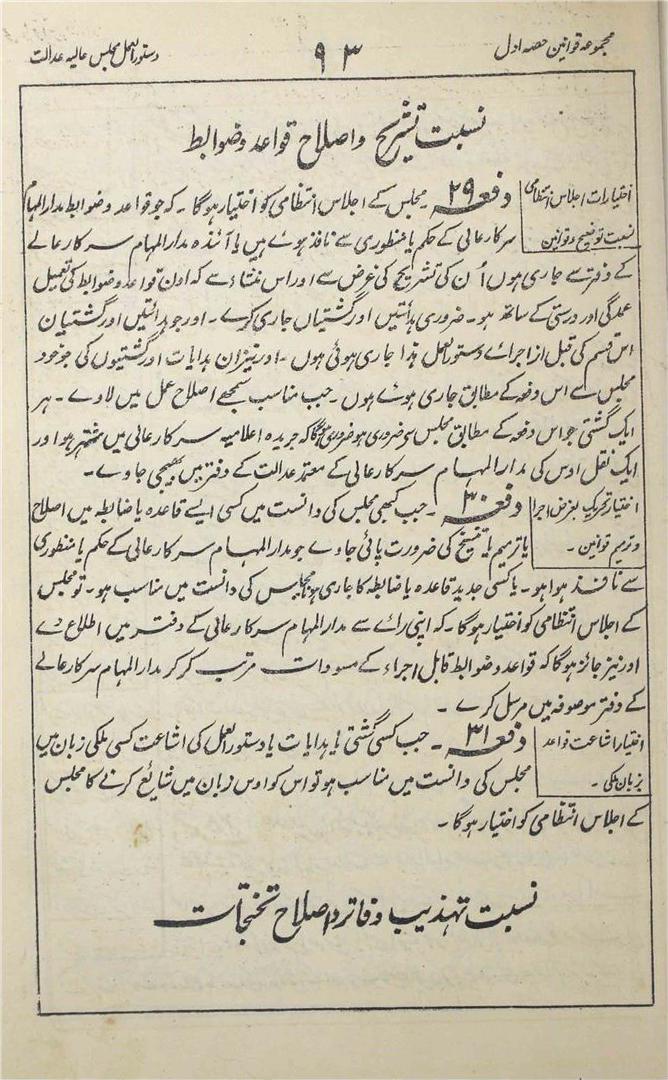 مجموعہ قوانین حصہ اول
۹۳
دستور العمل مجلس عالیہ عدالت
نسبت تشریح و اصلاح قواعد و ضوابط
اختیارات اجلاس انتظامی
نسبت توضیح و قوانین
دفعہ ۲۹ ۔ مجلس کے اجلاس انتظامی کو اختیار ہوگا ۔ کہ جو قواعد و ضوابط مدار المہام
سرکار عالی کے حکم یا منظوری سے نافذ ہوئے ہیں یا آئندہ مدار المہام سرکار عالے
کے دفتر سے جاری ہوں اُن کی تشریح کی غرض سے اور اس منشاء سے کہ اون قواعد و ضوابط کی تعمیل
عمدگی اور درستی کے ساتھ ہو ۔ ضروری ہدائتیں اور گشتیاں جاری کرے ۔ اور جو ہدائتیں اور گشتیان
اس قسم کی قبل از اجرائے دستور العمل ہذا جاری ہوئی ہوں ۔ اور نیز ان ہدایات اور گشتیوں کی جو خود
مجلس سے اس دفعہ کے مطابق جاری ہوئے ہوں ۔ جب مناسب سمجھے اصلاح عمل میں لاوے ۔ ہر
ایک گشتی جو اس دفعہ کے مطابق مجلس سے ضروری ہو ضروری ہوگا کہ جریدہ اعلامیہ سرکار عالی میں مشتہر ہو اور
ایک نقل اوس کی مدار المہام سرکار عالی کے معتمد عدالت کے دفتر میں بھیجی جاوے ۔
اختیار تحریک بغرض اجرا
و ترمیم قوانین ۔
دفعہ ۳۰ ۔ جب کبھی مجلس کی دانست میں کسی ایسے قاعدہ یا ضابطہ میں اصلاح
یا ترمیم یا تنسیخ کی ضرورت پائی جاوے جو مدار المہام سرکار عالی کے حکم یا منظوری
سے نافذ ہوا ہو ۔ یا کسی جدید قاعدہ یا ضابطہ کا جاری ہونا مجلس کی دانست میں مناسب ہو ۔ تو مجلس
کے اجلاس انتظامی کو اختیار ہوگا ۔ کہ اپنی رائے سے مدار المہام سرکار عالی کے دفتر میں اطلاع دے
اور نیز جائز ہوگا کہ قواعد و ضوابط قابل اجراء کے مسودات مرتب کر کر مدار المہام سرکار عالے
کے دفتر موصوفہ میں مرسل کرے ۔
اختیار اشاعت قواعد
بزبان ملکی ۔
دفعہ ۳۱ ۔ جب کسی گشتی یا ہدایات یا دستور العمل کی اشاعت کسی ملکی زبان میں
مجلس کی دانست میں مناسب ہو تو اس کو اوس زبان میں شائع کرنے کا مجلس
کے اجلاس انتظامی کو اختیار ہوگا ۔
نسبت تہذیب دفاتر و اصلاح تختجات